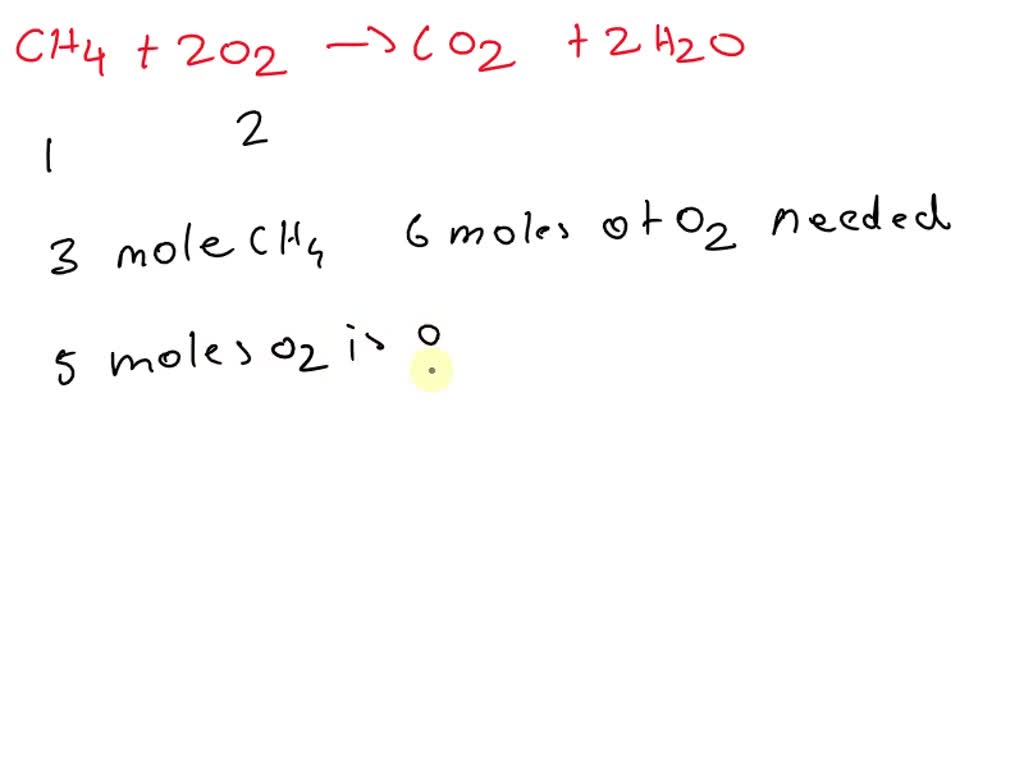 CH4 + 2O2 → CO2 + 2H2O
1 2
3 mole CH4 6 moles of O2 needed
5 moles O2 is o